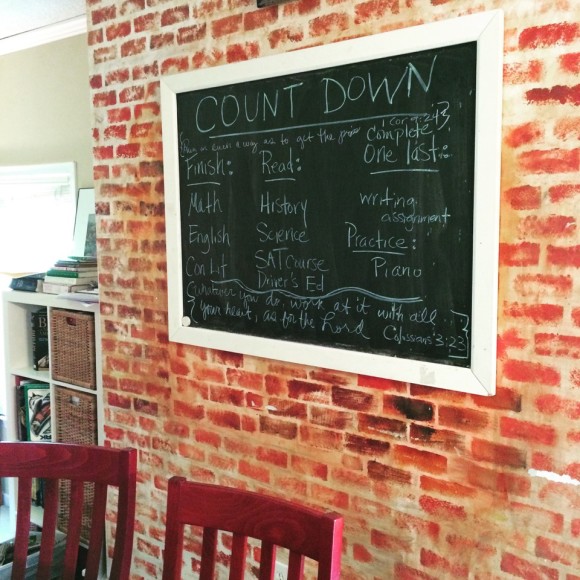 COUNT DOWN
{Run in such a way as to get the prize 1 Cor. 9:24}
Finish:
Math
English
Con Lit
Read:
History
Science
SAT Course
Driver's Ed
Complete
One last:
writing
assignment
Practice:
Piano
{Whatever you do, work at it with all
your heart, as for the Lord Colossians 3:23}